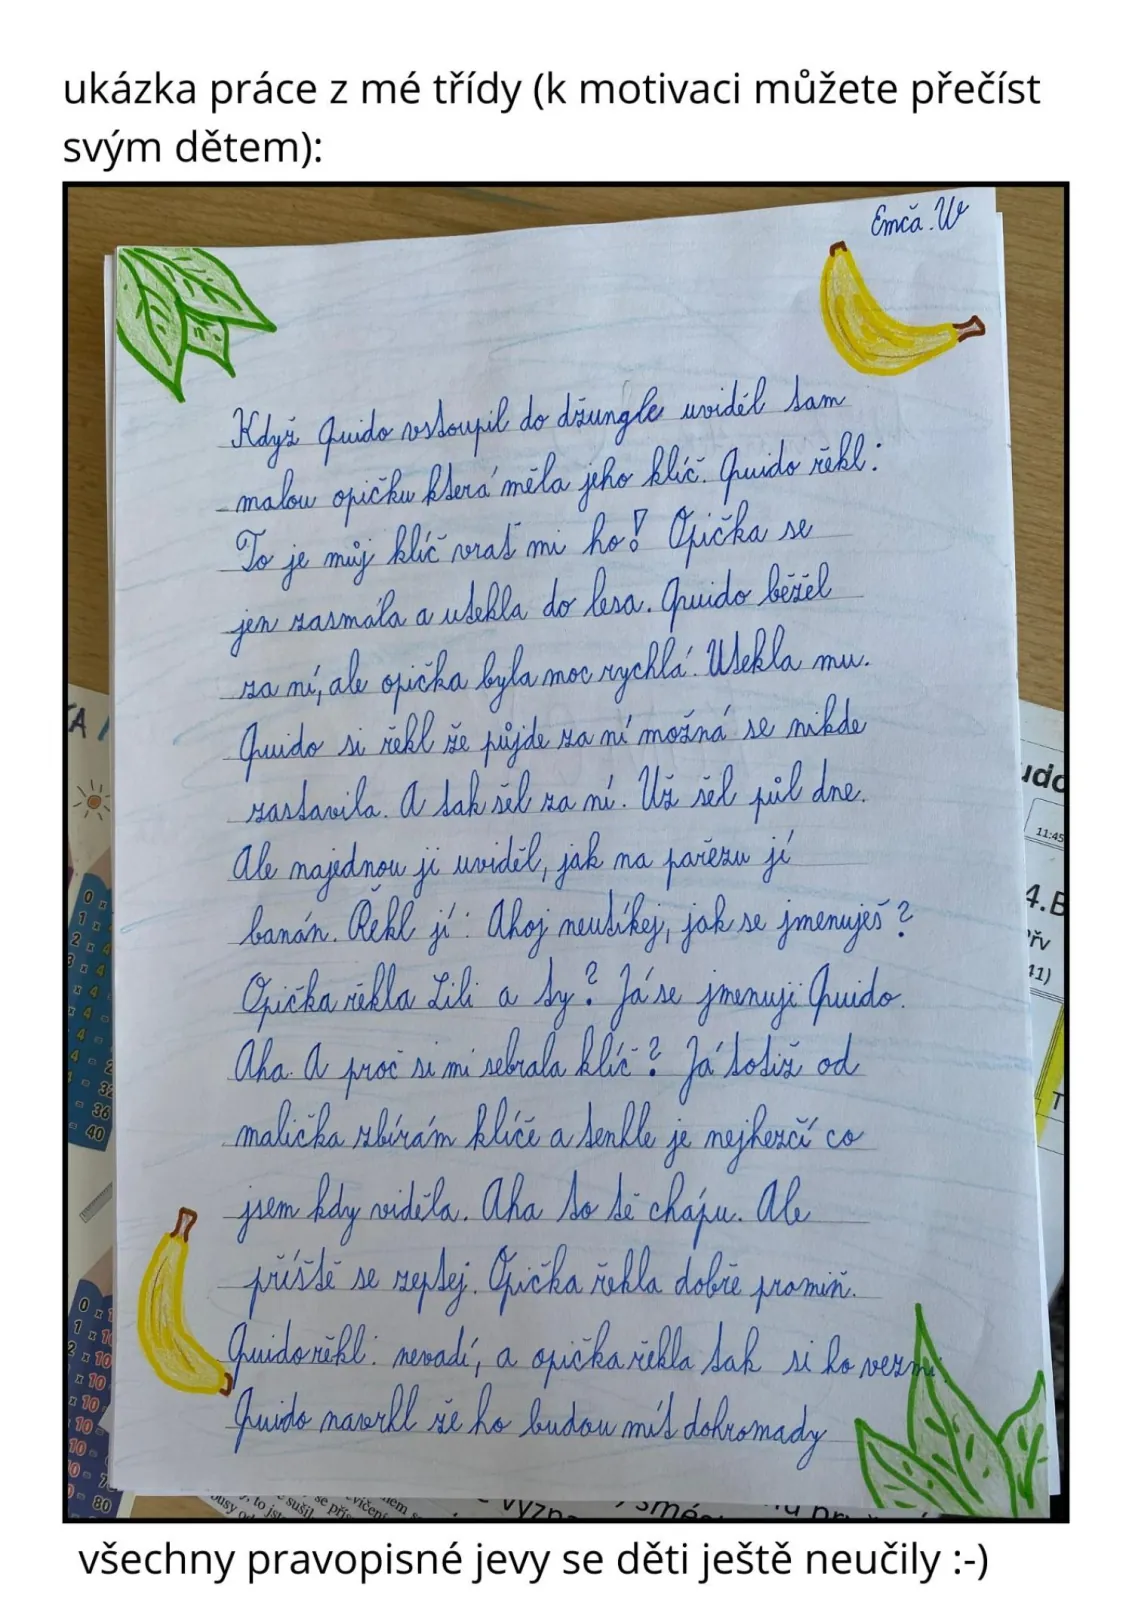 ukázka práce z mé třídy (k motivaci můžete přečíst
svým dětem):
Emča.W
Když Quido vstoupil do džungle uviděl tam
malou opičku která měla jeho klíč. Quido řekl:
To je můj klíč vrať mi ho! Opička se
jen zasmála a utekla do lesa. Quido běžel
za ní, ale opička byla moc rychlá. Utekla mu.
Quido si řekl že půjde za ní možná se nikde
zastavila. A tak šel za ní. Už šel půl dne.
Ale najednou ji uviděl, jak na pařezu jí
banán. Řekl jí: Ahoj neutíkej, jak se jmenuješ?
Opička řekla Lili a ty? Já se jmenuji Quido.
Aha. A proč si mi sebrala klíč? Já totiž od
malička sbírám klíče a tenhle je nejhezčí co
jsem kdy viděla. Aha to tě chápu. Ale
příště se zeptej. Opička řekla dobře promiň.
Quido řekl: nevadí, a opička řekla tak si ho vezmi.
Quido navrhl že ho budou mít dohromady
všechny pravopisné jevy se děti ještě neučily :-)
udo
11:45
4.B
0 x
1 x
2 x 4
36
40
0 x 1
1 x 10
2 x 10
x 10
80